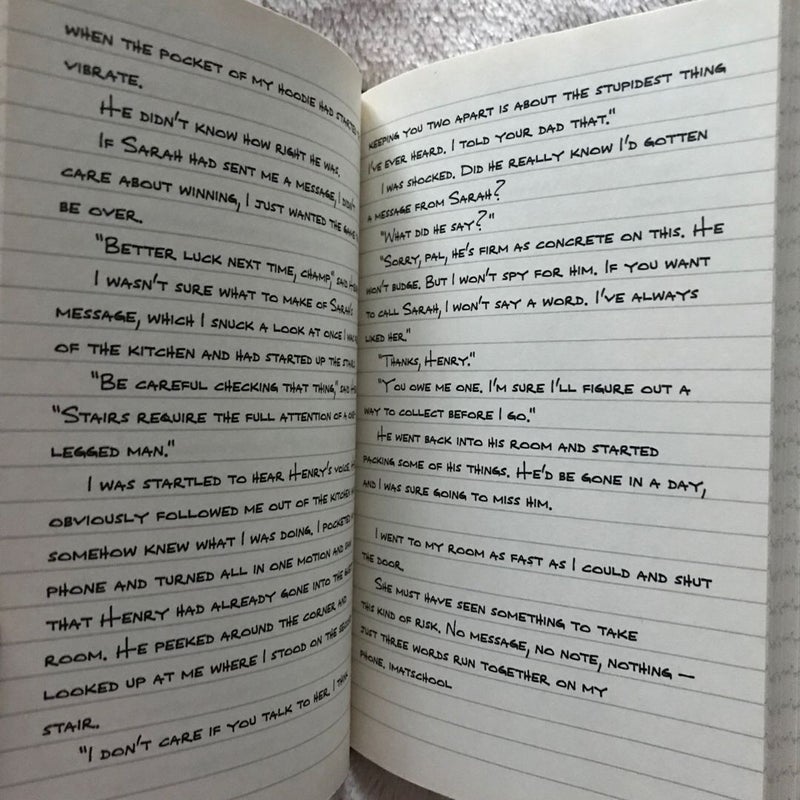 WHEN THE POCKET OF MY HOODIE HAD STARTED
VIBRATE.
HE DIDN'T KNOW HOW RIGHT HE WAS.
IF SARAH HAD SENT ME A MESSAGE, I DIDN'T
CARE ABOUT WINNING, I JUST WANTED THE GAME
BE OVER.
"BETTER LUCK NEXT TIME, CHAMP," SAID
I WASN'T SURE WHAT TO MAKE OF SARAH'S
MESSAGE, WHICH I SNUCK A LOOK AT ONCE I WAS
OF THE KITCHEN AND HAD STARTED UP THE
"BE CAREFUL CHECKING THAT THING," SAID
"STAIRS REQUIRE THE FULL ATTENTION OF A
LEGGED MAN."
I WAS STARTLED TO HEAR HENRY'S VOICE.
OBVIOUSLY FOLLOWED ME OUT OF THE KITCHEN
SOMEHOW KNEW WHAT I WAS DOING. I POCKETED
PHONE AND TURNED ALL IN ONE MOTION AND
THAT HENRY HAD ALREADY GONE INTO THE
ROOM. HE PEEKED AROUND THE CORNER AND
LOOKED UP AT ME WHERE I STOOD ON THE
STAIR.
"I DON'T CARE IF YOU TALK TO HER. I THINK
KEEPING YOU TWO APART IS ABOUT THE STUPIDEST THING
I'VE EVER HEARD. I TOLD YOUR DAD THAT."
I WAS SHOCKED. DID HE REALLY KNOW I'D GOTTEN
A MESSAGE FROM SARAH?
"WHAT DID HE SAY?"
"SORRY, PAL, HE'S FIRM AS CONCRETE ON THIS. HE
WON'T BUDGE. BUT I WON'T SPY FOR HIM. IF YOU WANT
TO CALL SARAH, I WON'T SAY A WORD. I'VE ALWAYS
LIKED HER."
"THANKS, HENRY."
"YOU OWE ME ONE. I'M SURE I'LL FIGURE OUT A
WAY TO COLLECT BEFORE I GO."
HE WENT BACK INTO HIS ROOM AND STARTED
PACKING SOME OF HIS THINGS. HE'D BE GONE IN A DAY,
AND I WAS SURE GOING TO MISS HIM.
I WENT TO MY ROOM AS FAST AS I COULD AND SHUT
THE DOOR.
SHE MUST HAVE SEEN SOMETHING TO TAKE
THIS KIND OF RISK. NO MESSAGE, NO NOTE, NOTHING —
JUST THREE WORDS RUN TOGETHER ON MY
PHONE. IMATSCHOOL